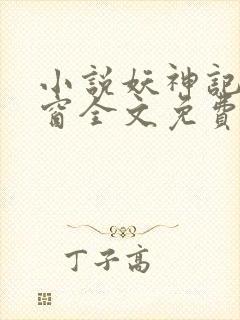 小說妖神記
窗全文免費
丁子高